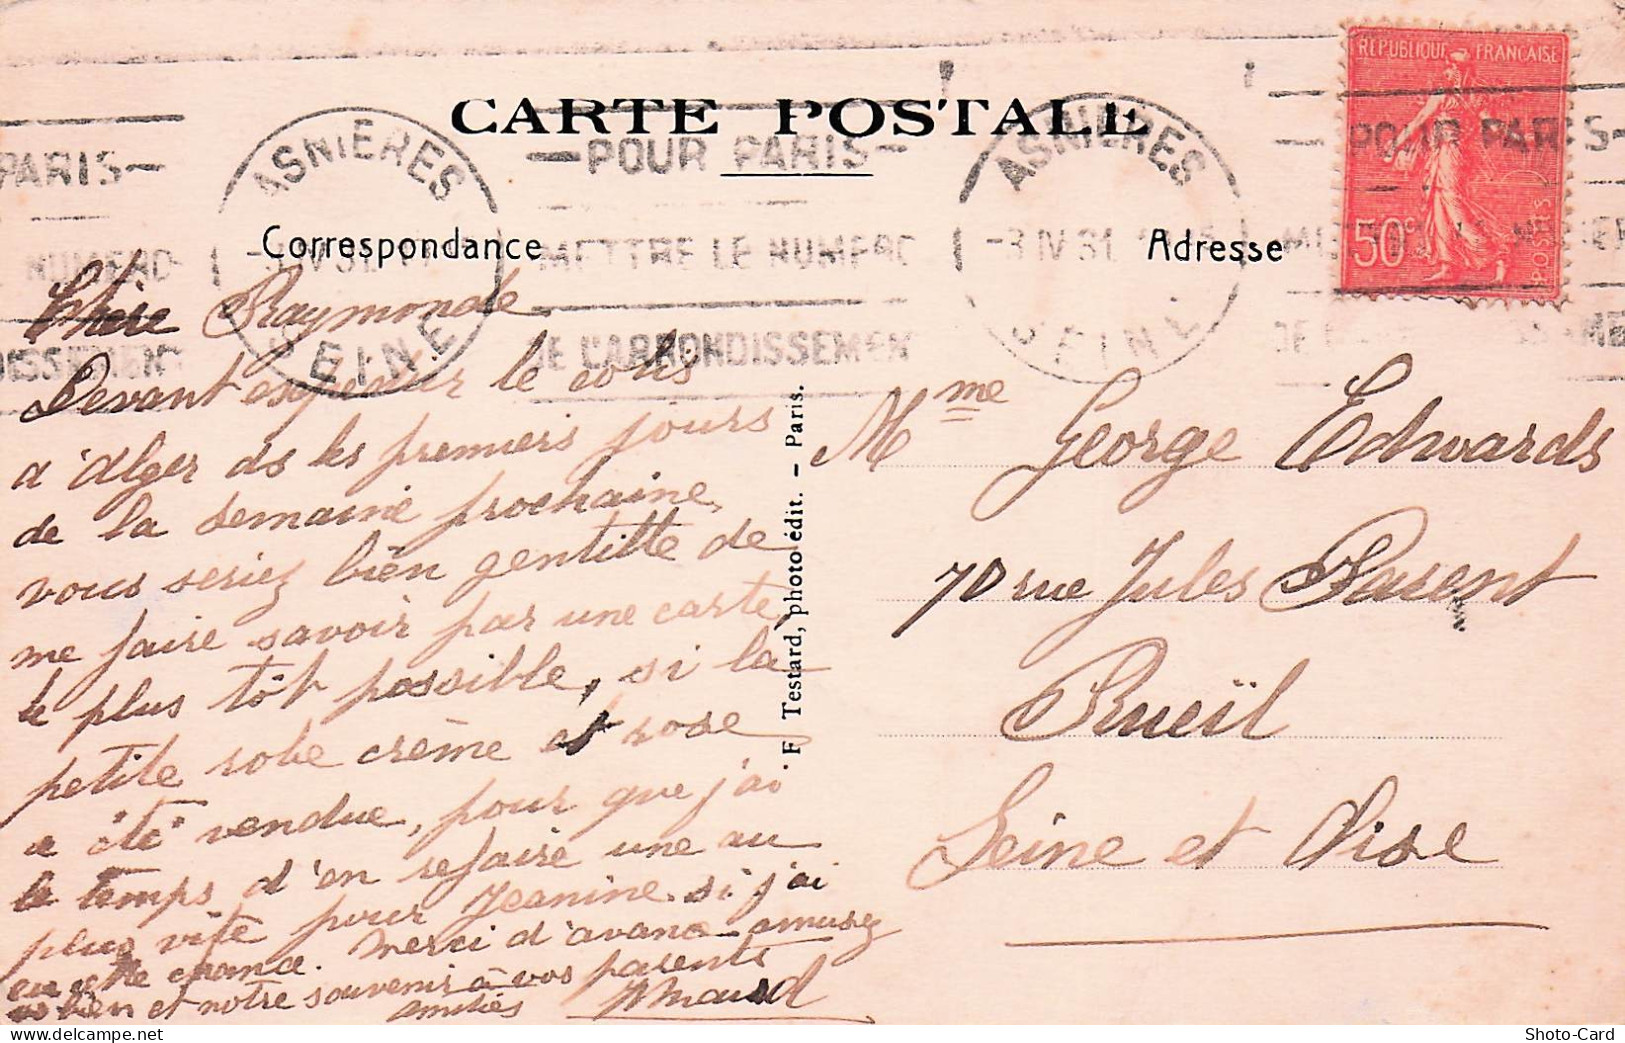 CARTE POSTALE
RÉPUBLIQUE FRANÇAISE
50c
POSTES
ASNIÈRES
SEINE
-3 IV 31
POUR PARIS
METTRE LE NUMERO
DE L'ARRONDISSEMENT
ASNIÈRES
SEINE
-3 IV 31
POUR PARIS
Correspondance
Adresse
Chère Raymonde
Devant le colis
d'Alger ds les premiers jours
de la semaine prochaine,
vous seriez bien gentille de
me faire savoir par une carte,
le plus tôt possible, si la
petite robe crème et rose
a été vendue, pour que j'ai
le temps d'en refaire une au
plus vite pour Jeanine. si j'ai
eu cette chance. Merci d'avance amusez
vs bien et notre souvenir à vos parents
amitiés
F Testard, photo édit. - Paris.
Mme George Edwards
70 rue Jules Parent
Rueïl
Seine et Oise
Shoto-Card